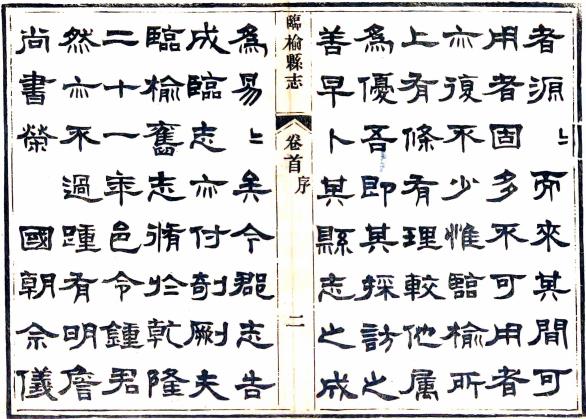 者源〻而來其間可
用者固多不可用者
亦復不少惟臨榆所
上有條有理較他属
為優吾即其採訪之
善早卜其縣志之成
臨榆縣志
卷首
序
二
為易〻矣今郡志告
成臨志亦付剞劂夫
臨榆舊志脩於乾隆
二十一年邑令鍾君
然亦不過踵有明詹
尚書榮　國朝佘儀